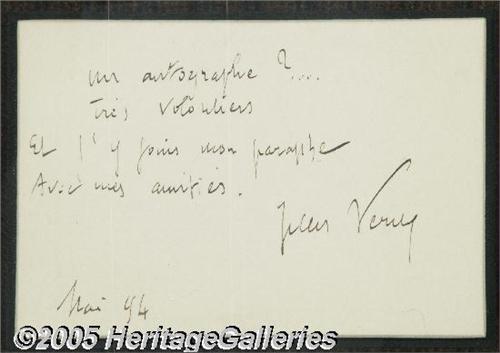 un autographe ?...
très volontiers
Et j'y joins mon paraphe
Avec mes amitiés.
Jules Verne
Mai 94
©2005 HeritageGalleries